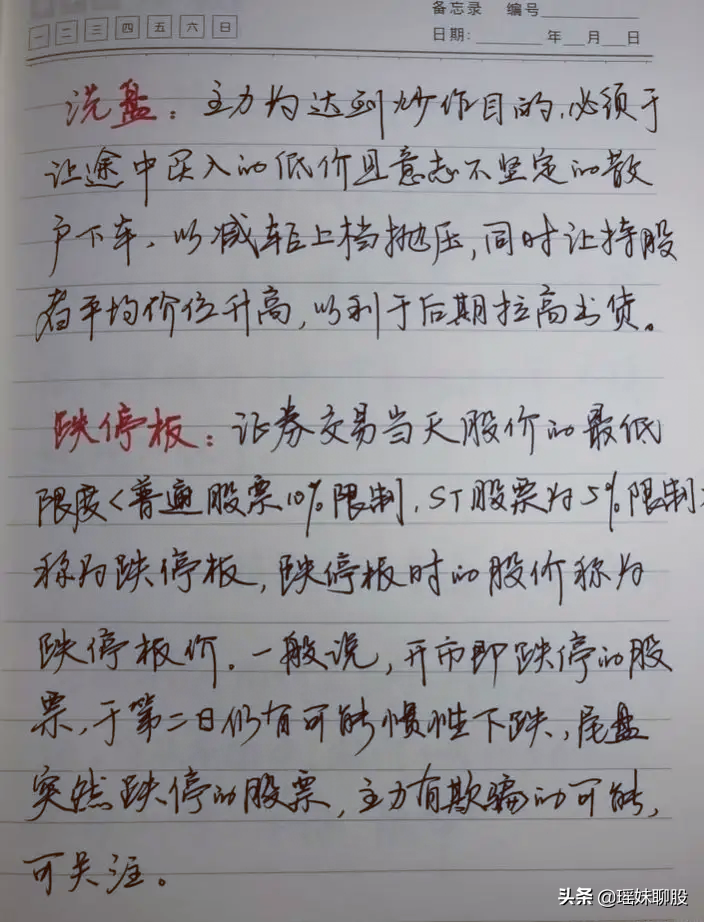 备忘录 编号
一 二 三 四 五 六 日
日期: 年 月 日
洗盘：主力为达到炒作目的，必须于
让途中买入的低价且意志不坚定的散
户下车，以减轻上档抛压，同时让持股
者平均价位升高，以利于后期拉高出货。
跌停板：证券交易当天股价的最低
限度<普通股票10%限制，ST股票为5%限制>
称为跌停板，跌停板时的股价称为
跌停板价。一般说，开市即跌停的股
票，于第二日仍有可能惯性下跌，尾盘
突然跌停的股票，主力有欺骗的可能，
可关注。
头条 @瑶妹聊股